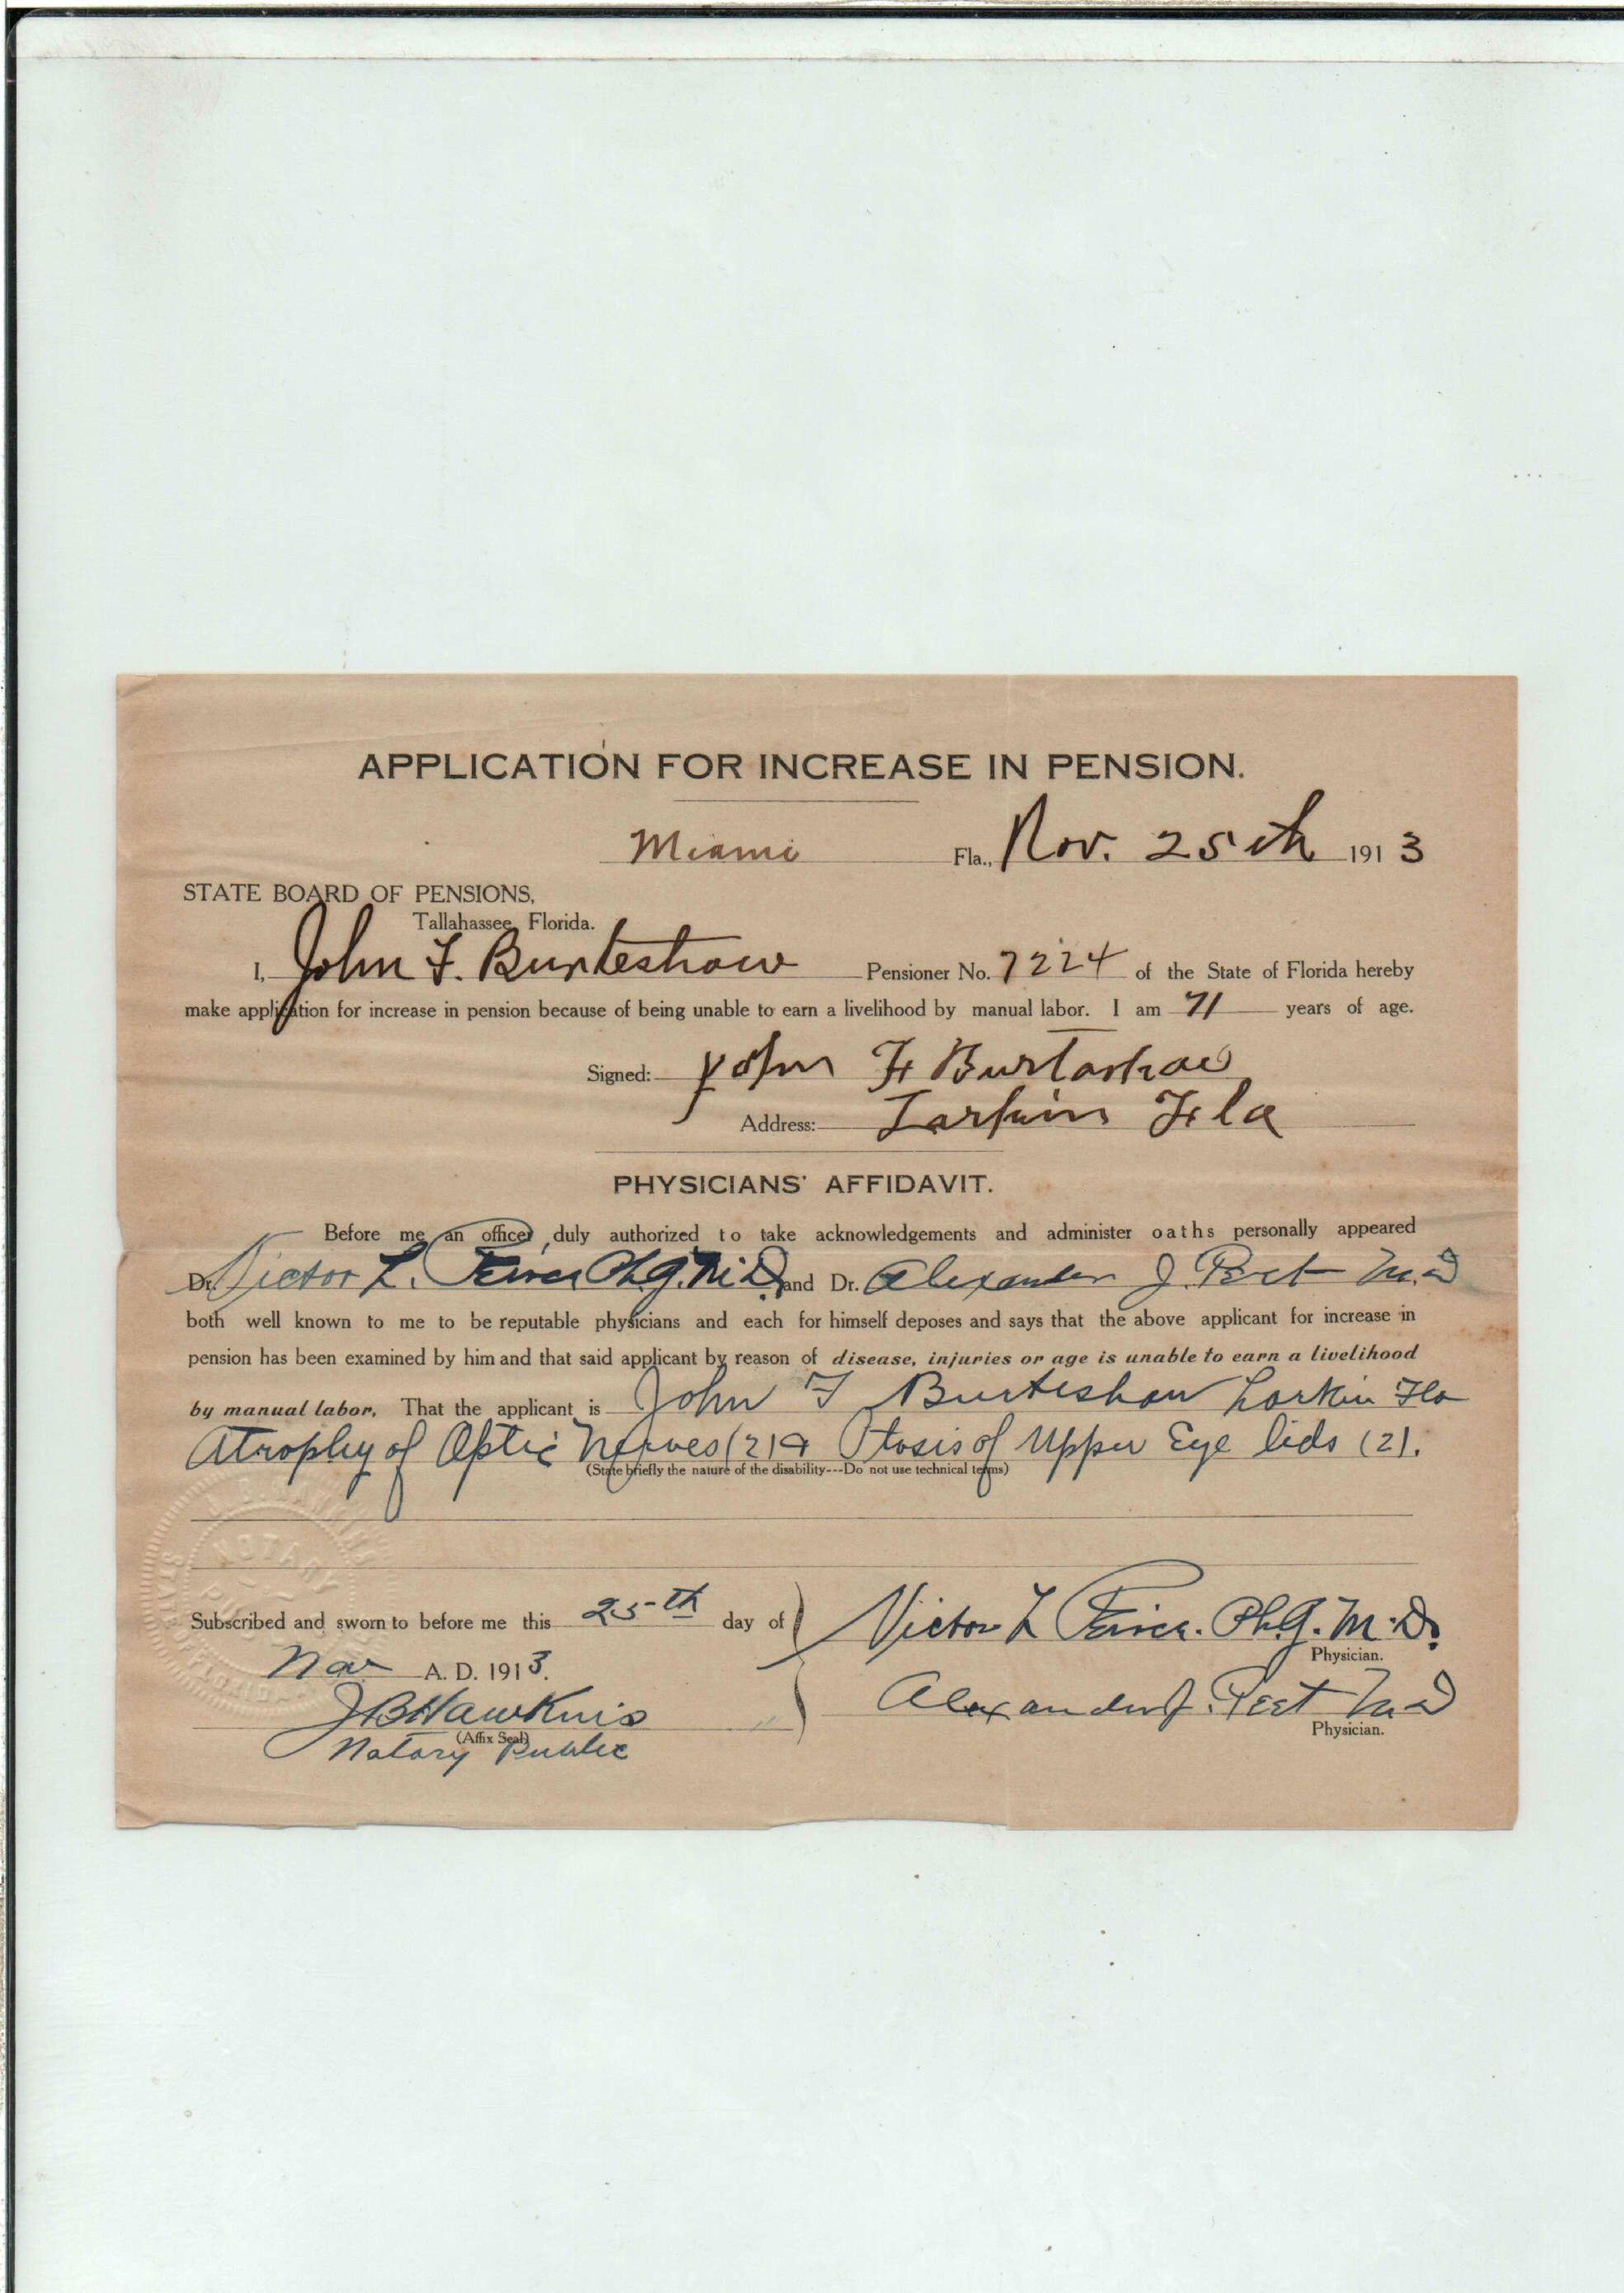 APPLICATION FOR INCREASE IN PENSION.
Miami Fla., Nov. 25th 1913
STATE BOARD OF PENSIONS,
Tallahassee, Florida.
I, John F. Burteshaw Pensioner No. 7224 of the State of Florida hereby
make application for increase in pension because of being unable to earn a livelihood by manual labor. I am 71 years of age.
Signed: John F Burtashaw
Address: Larkin Fla
PHYSICIANS' AFFIDAVIT.
Before me an officer, duly authorized to take acknowledgements and administer oaths personally appeared
Dr. Victor L. Ph.G. M.D. and Dr. Alexander J. Peet M.D
both well known to me to be reputable physicians and each for himself deposes and says that the above applicant for increase in
pension has been examined by him and that said applicant by reason of disease, injuries or age is unable to earn a livelihood
by manual labor. That the applicant is John F Burteshaw Larkin Fla
Atrophy of Optic Nerves (2) & Ptosis of Upper Eye lids (2).
(State briefly the nature of the disability---Do not use technical terms)
NOTARY
Subscribed and sworn to before me this 25th day of
Nov A. D. 1913.
Victor L Ph.G. M.D.
Physician.
J B Hawkins
(Affix Seal)
Notary Public
Alexander J. Peet M.D
Physician.